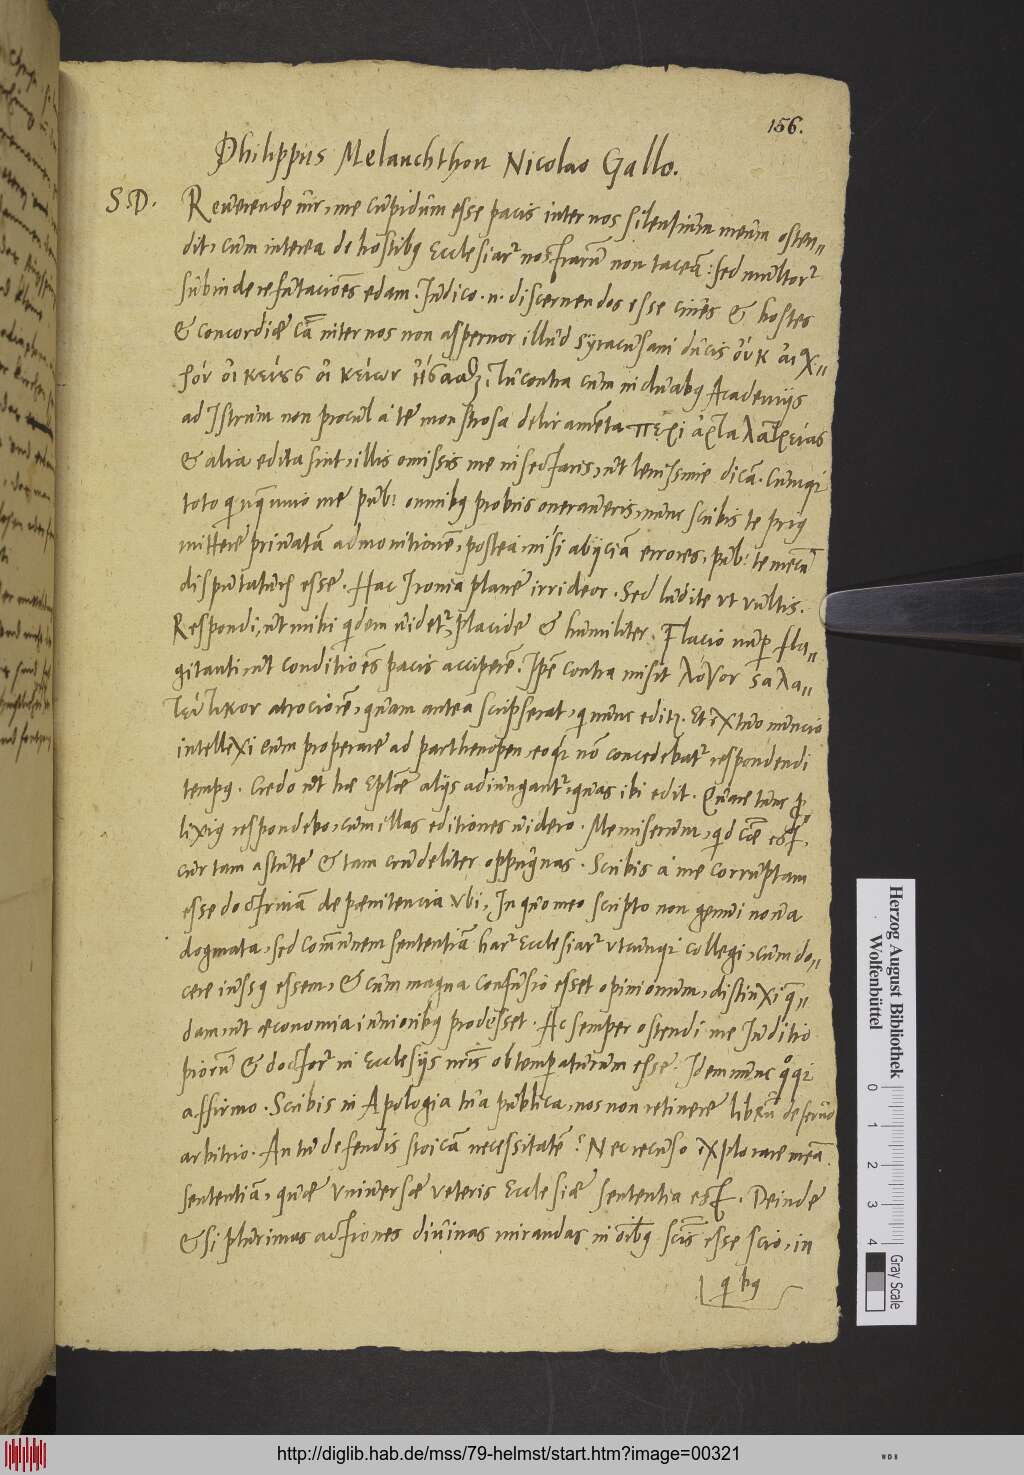 156.
Philippus Melanchthon Nicolao Gallo.
S. D. Reuerende uir, me cupidum esse pacis inter nos silentium meum osten„
dit, cum interea de hostibꝯ Ecclesiarꝝ nostrarū non taceā: sed multorꝝ
subinde refutacioēs edam. Iudico .n. discernendos esse ciues & hostes
& concordiæ cā inter nos non aspernor illud Syracusani ducis οὐκ αἰχ„
ρὸν οἰκείους οἰκείων
Tu contra cum in duabꝯ Academijs
ad Istrum non procul à te monstrosa deliramēta περὶ ἀρτολατρείας
& alia edita sint, illis omissis me insectaris, ut lenissime dicā. Cumqꝫ
toto qinqūenio me pub: omnibꝯ probris oneraueris, nunc scribis te priꝯ
mittere priuatā admonitionē, postea nisi abijciā errores, pub: te mecū
disputaturū esse. Hac Ironia plane irrideor. Sed ludite vt vultis.
Respondi, ut mihi qidem uidetꝝ, placide & humiliter. Flacio nuꝑ fla„
gitanti, ut conditioēs pacis acciperē. Ipē contra misit λόγον
atrociorē, quam antea scripserat, qi nunc editꝫ. Et ex tuo nuncio
intellexi eum properare ad parthenopen, eoqꝫ nō concedebatꝝ respondendi
tempꝯ. Credo ut hæ Eplæ alijs adiungantꝝ, quas ibi edit. Quare tunc ꝓ
lixiꝯ respondebo, cum illas editiones uidero. Me miserum, qd cāe est,
cur tam astute & tam crudeliter oppugnas. Scribis à me corruptam
esse doctrinā de pœnitencia vbi, In quo meo scripto non genui noua
dogmata, sed commūnem sententiā harꝝ Ecclesiarꝝ vtcunqꝫ collegi, cum do„
cere iussꝯ essem, & cum magna confusio esset opinionum, distinxi q̄„
dam, ut œconomia iunioribꝯ prodesset. Ac semper ostendi me Iuditio
piorū & doctorꝝ in Ecclesijs nris obtemperaturum esse. Idem nunc qͦqꝫ
affirmo. Scribis in Apologia tua publica, nos non retinere libRū de seruo
arbitrio. An tu defendis stoicā necessitatē? Nec recuso explorare meā
sententiā, quæ vniuersæ veteris Ecclesiæ sententia est. Deinde
& si plurimas actiones diuinas mirandas in oībꝯ scīs esse scio, in
qibꝯ
Herzog August Bibliothek
Wolfenbüttel
0 1 2 3 4
Gray Scale
http://diglib.hab.de/mss/79-helmst/start.htm?image=00321